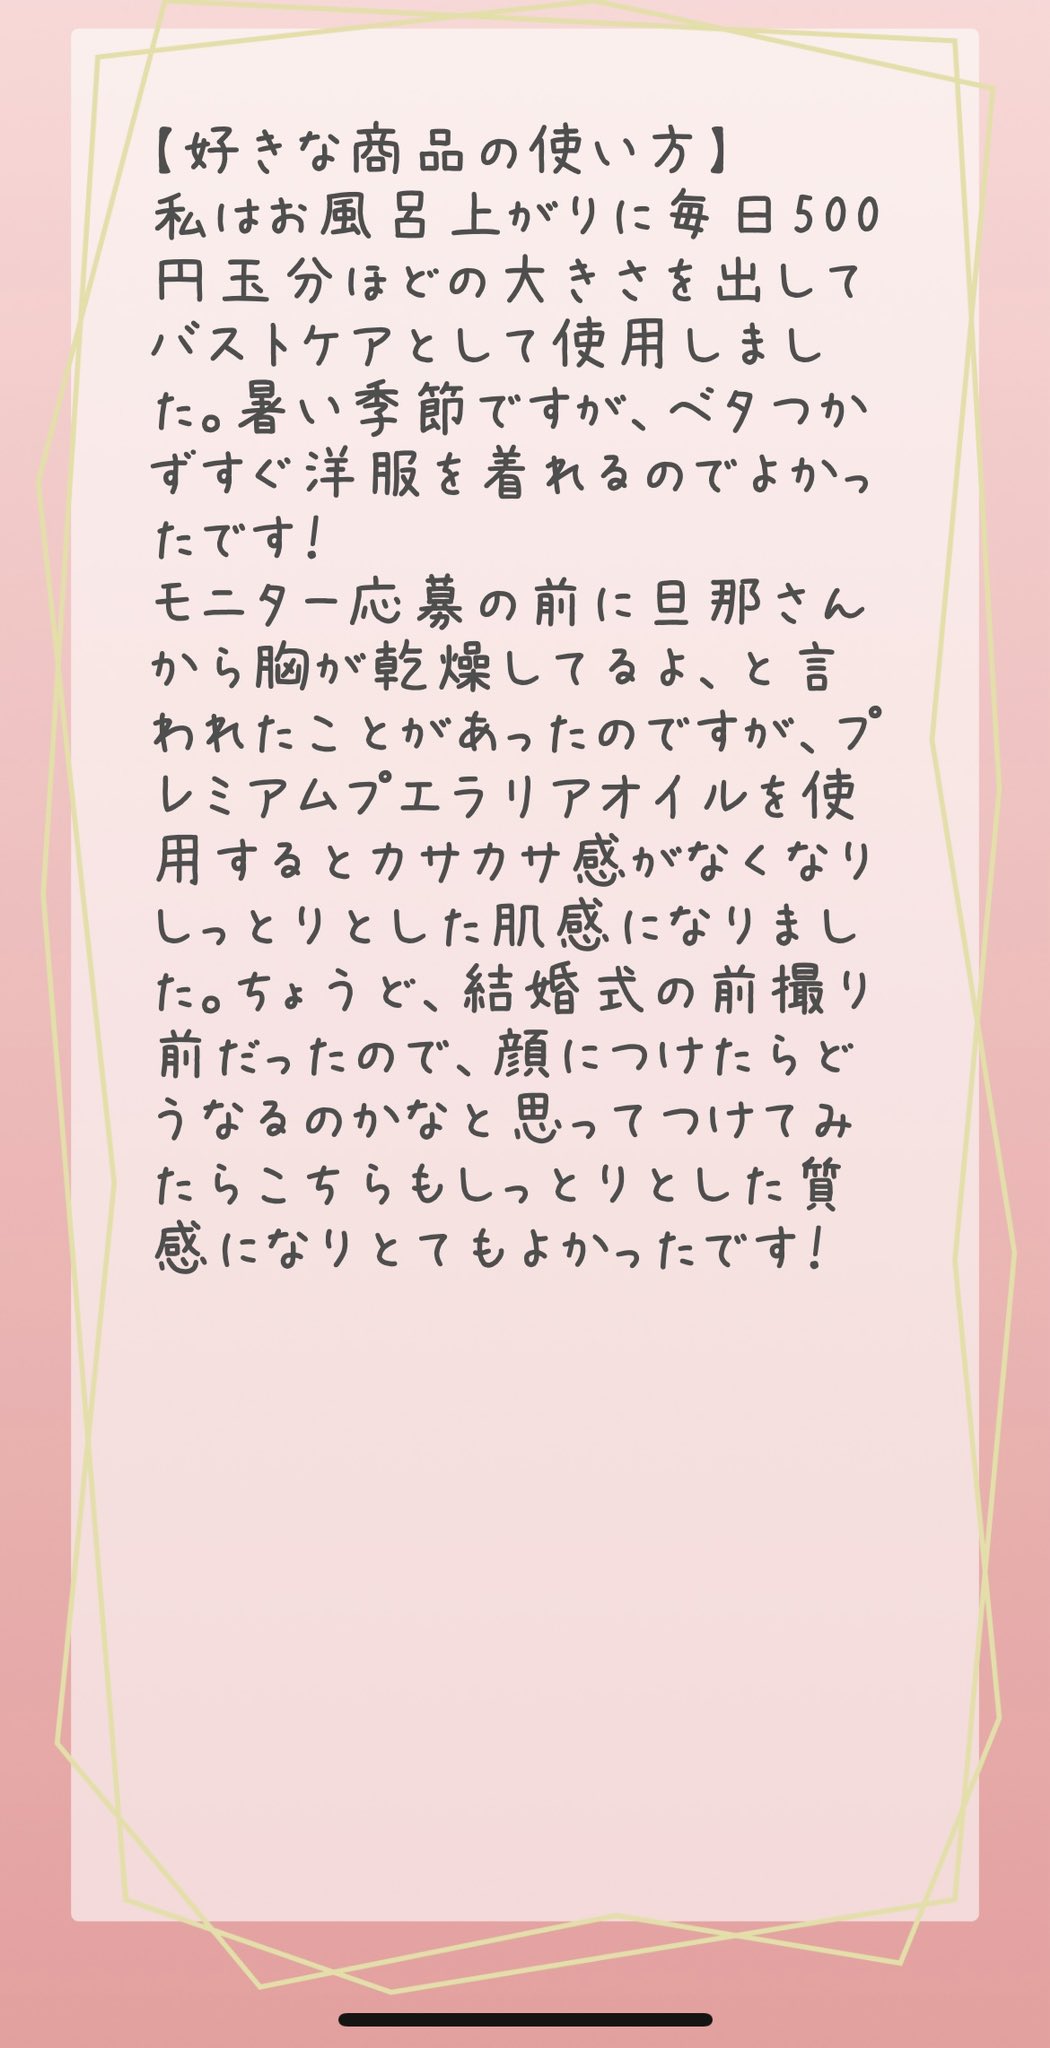 【好きな商品の使い方】
私はお風呂上がりに毎日500
円玉分ほどの大きさを出して
バストケアとして使用しまし
た。暑い季節ですが、ベタつか
ずすぐ洋服を着れるのでよかっ
たです!
モニター応募の前に旦那さん
から胸が乾燥してるよ、と言
われたことがあったのですが、プ
レミアムプエラリアオイルを使
用するとカサカサ感がなくなり
しっとりとした肌感になりまし
た。ちょうど、結婚式の前撮り
前だったので、顔につけたらど
うなるのかなと思ってつけてみ
たらこちらもしっとりとした質
感になりとてもよかったです!